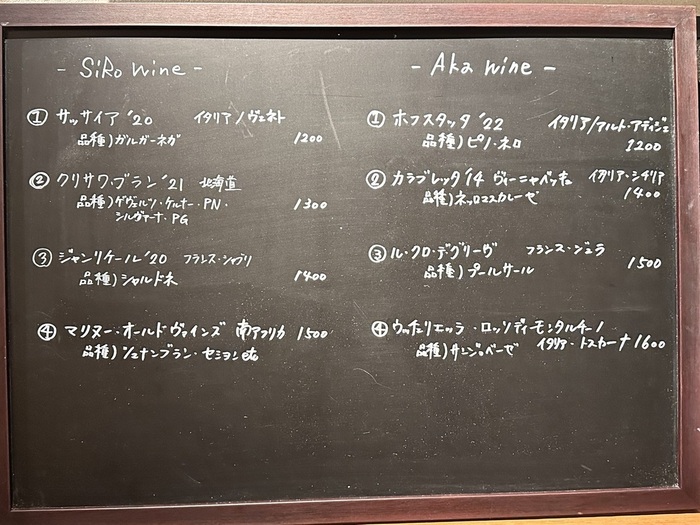 - SiRo wine -
① サッサイア '20 イタリア/ヴェネト
品種)ガルガーネガ 1200
② クリサワ・ブラン '21 北海道
品種)ゲヴェルツ・ケルナー・PN・
シルヴァーナ・PG 1300
③ ジャンリケール '20 フランス・シャブリ
品種)シャルドネ 1400
④ マリヌー・オールドヴァインズ 南アフリカ 1500
品種)シュナンブラン・セミヨン etc
- Aka wine -
① ホフスタッタ '22 イタリア/アルト・アディジェ
品種)ピノ・ネロ 1200
② カラブレッタ '14 ヴィーニャベッキェ イタリア・シチリア
品種)ネッロマスカレーゼ 1400
③ ル・クロ・デ・グリーヴ フランス・ジュラ
品種)プールサール 1500
④ ウッチェリエッラ・ロッソディモンタルチーノ
品種)サンジョベーゼ イタリア・トスカーナ 1600